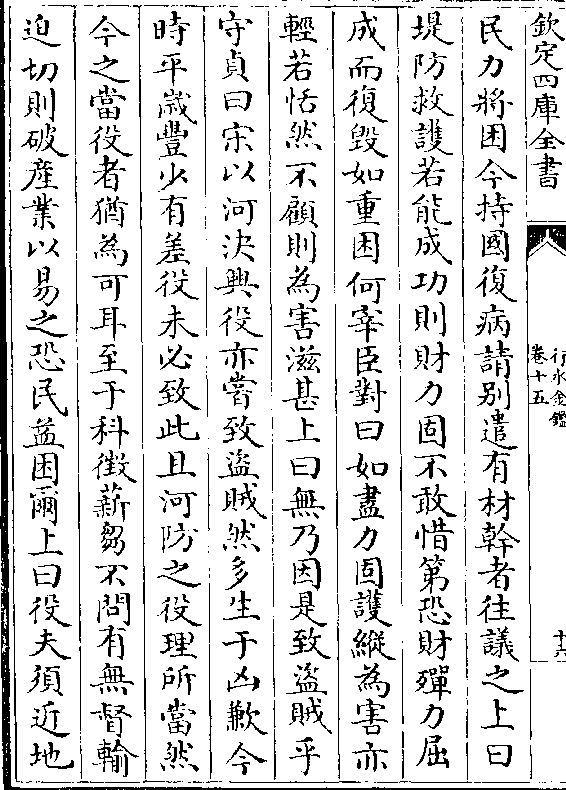 欽定四庫全書
行水金鑑
卷十五
十六
民力將困今持國復病請别遣有材幹者往議之上曰
堤防救護若能成功則財力固不敢惜第恐財殫力屈
成而復毀如重困何宰臣對曰如盡力固護縱為害亦
輕若恬然不顧則為害滋甚上曰無乃因是致盜賊乎
守貞曰宋以河決興役亦嘗致盜賊然多生于凶歉今
時平嵗豐少有差役未必致此且河防之役理所當然
今之當役者猶為可耳至于科徴薪芻不問有無督輸
迫切則破產業以易之恐民益困爾上曰役夫須近地